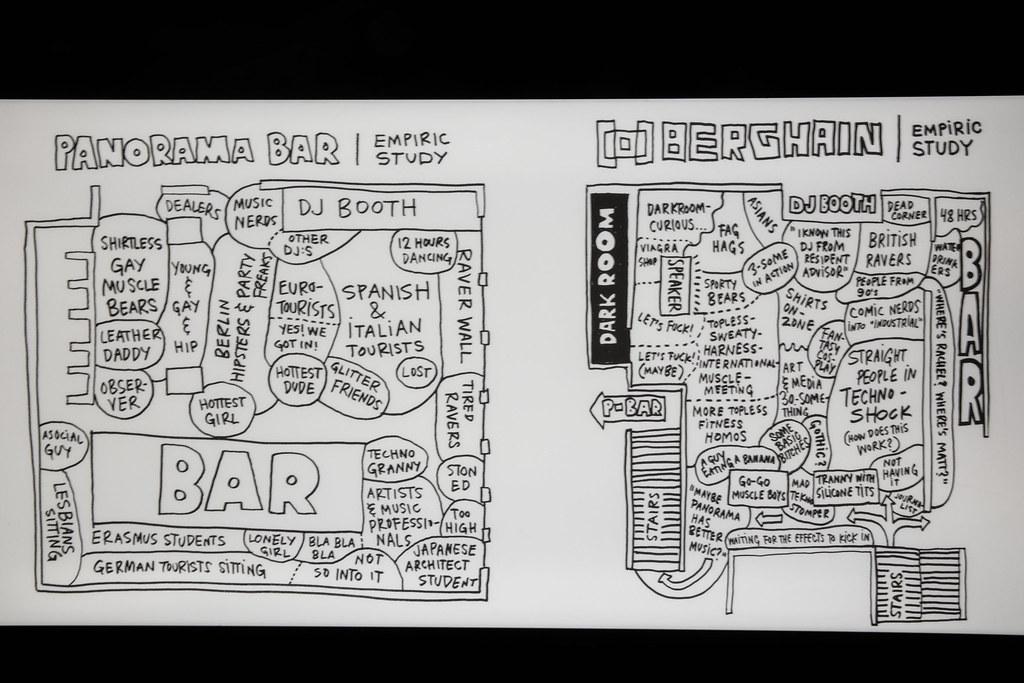 PANORAMA BAR
EMPIRIC
STUDY
DEALERS
MUSIC
NERDS
DJ BOOTH
SHIRTLESS
GAY
MUSCLE
BEARS
YOUNG
&
GAY &
HIP
BERLIN
HIPSTERS & PARTY
FREAKS
OTHER
DJ:S
12 HOURS
DANCING
RAVER WALL
EURO-
TOURISTS
YES! WE
GOT IN!
SPANISH
&
ITALIAN
TOURISTS
LEATHER
DADDY
OBSER-
VER
HOTTEST
GIRL
HOTTEST
DUDE
GLITTER
FRIENDS
LOST
TIRED
RAVERS
ASOCIAL
GUY
BAR
TECHNO
GRANNY
STON
ED
LESBIANS
SITTING
ARTISTS
& MUSIC
PROFESSIO-
NALS
TOO
HIGH
ERASMUS STUDENTS
LONELY
GIRL
BLA BLA
BLA
GERMAN TOURISTS SITTING
NOT
SO INTO IT
JAPANESE
ARCHITECT
STUDENT
BERGHAIN
EMPIRIC
STUDY
DARK ROOM
DARKROOM-
CURIOUS...
VIAGRA
SHOP
SPEAKER
FAG
HAGS
ASIANS
DJ BOOTH
DEAD
CORNER
48 HRS
"I KNOW THIS
DJ FROM
RESIDENT
ADVISOR"
BRITISH
RAVERS
WATER
DRINK
ERS
BAR
3-SOME
IN ACTION
SPORTY
BEARS
PEOPLE FROM
90'S
SHIRTS
ON-
ZONE
COMIC NERDS
INTO "INDUSTRIAL"
"WHERE'S RACHEL? WHERE'S MATT?"
LET'S FUCK!
LET'S FUCK!
(MAYBE)
TOPLESS-
SWEATY-
HARNESS-
INTERNATIONAL-
MUSCLE-
MEETING
FAN-
TASY
COS-
PLAY
STRAIGHT
PEOPLE IN
TECHNO-
SHOCK
(HOW DOES THIS
WORK?)
ART
& MEDIA
30-SOME-
THING
P-BAR
MORE TOPLESS
FITNESS
HOMOS
SOME
BASIC
BITCHES
GOTHIC?
NOT
HAVING
IT
A GUY
EATING A BANANA
GO-GO
MUSCLE BOYS
MAD
TEKNO
STOMPER
TRANNY WITH
SILICONE TITS
JOURNA-
LIST
STAIRS
"MAYBE
PANORAMA
HAS
BETTER
MUSIC?"
WAITING FOR THE EFFECTS TO KICK IN
STAIRS